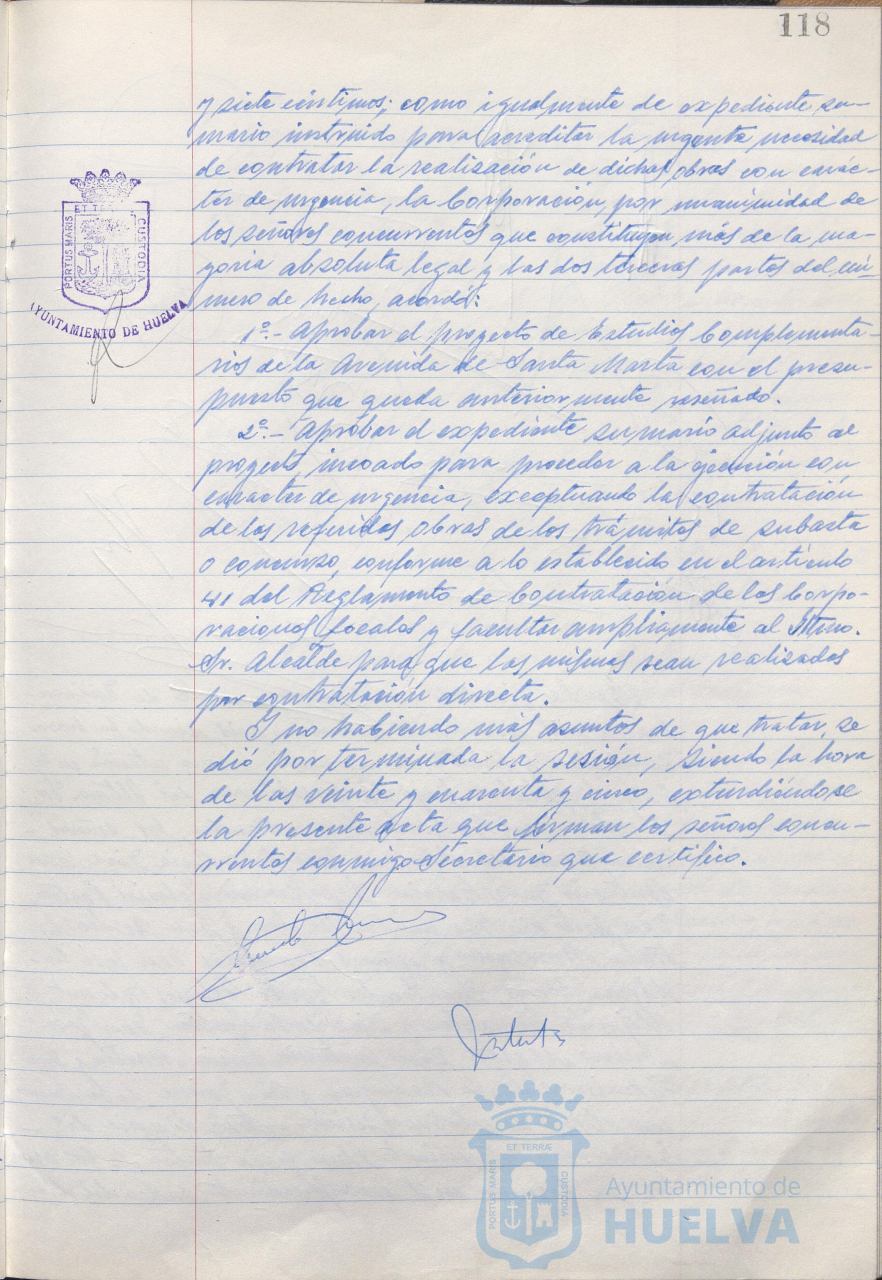 118
y siete céntimos; como igualmente de expediente su-
mario instruido para acreditar la urgente necesidad
de contratar la realización de dichas obras con carác-
ter de urgencia, la Corporación, por unanimidad de
los señores concurrentes que constituyen más de la ma-
yoria absoluta legal y las dos terceras partes del nú-
mero de hecho, acordó:
1º.- Aprobar el proyecto de Estudios Complementa-
rios de la Avenida de Santa Marta con el presu-
puesto que queda anteriormente reseñado.
2º.- Aprobar el expediente sumario adjunto al
proyecto, incoado para proceder a la ejecución con
caracter de urgencia, exceptuando la contratación
de las referidas obras de los trámites de subasta
o concurso, conforme a lo establecido en el artículo
41 del Reglamento de Contratación de las Corpo-
raciones Locales y facultar ampliamente al Iltmo.
Sr. Alcalde para que las mismas sean realizadas
por contratación directa.
Y no habiendo más asuntos de que tratar, se
dió por terminada la sesión, siendo la hora
de las veinte y cuarenta y cinco, extendiéndose
la presente acta que firman los señores concu-
rrentes conmigo Secretario que certifico.
PORTUS MARIS ET TERRÆ CUSTODIA
AYUNTAMIENTO DE HUELVA
PORTUS MARIS ET TERRÆ CUSTODIA
Ayuntamiento de
HUELVA